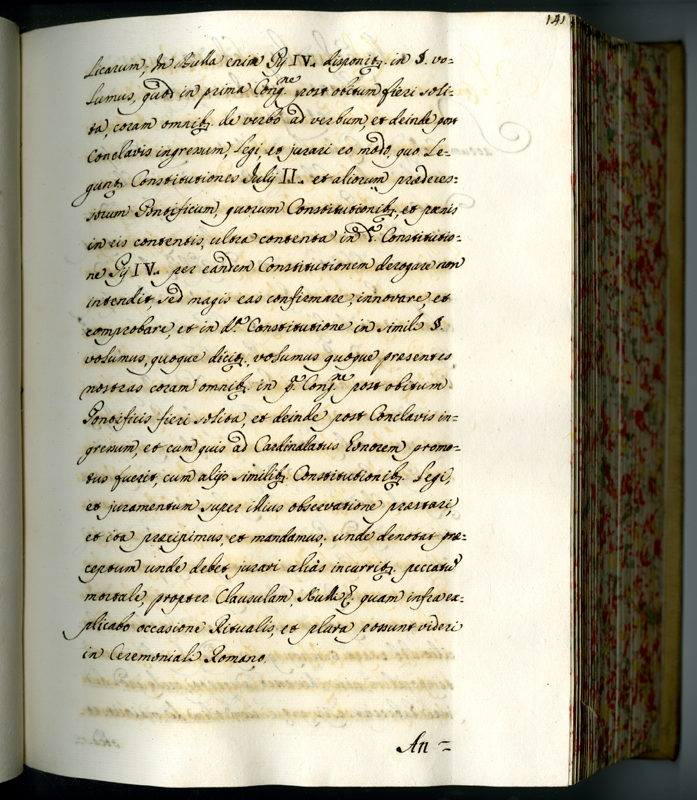 141
licarum, In Bulla enim Pij IV. disponitq. in §. vo-
lumus, quod in prima Cong.ne post obitum fieri soli-
ta, coram omnibq. de verbo ad verbum, et deinde post
Conclavis ingressum, legi et jurari eo modo, quo Le-
guntq. Constitutiones Julij II. et aliorum prædeces-
sorum Pontificum, quorum Constitutionibq. et pænis
in eis contentis, ultra contenta in Constitutio-
ne Pij IV. per eandem Constitutionem derogare non
intendit sed magis eas confirmare, innovare, et
comprobare, et in d.a Constitutione in simili §.
volumus, quoque dicitq. volumus quoque presentes
nostras coram omnibq. in p.a Cong.ne post obitum
Pontificis fieri solita, et deinde post Conclavis in-
gressum, et cum quis ad Cardinalatus Honorem promo-
tus fuerit, cum alijs similibq. Constitutionibq. Legi,
et juramentum super illius observatione præstari,
et ita præcipimus, et mandamus, unde denotat præ-
ceptum unde debet jurari aliàs incurritq. peccatũ
mortale, propter Clausulam, quam infra ex-
plicabo occasione Ritualis, et plura possunt videri
in Ceremoniali Romano.
An=